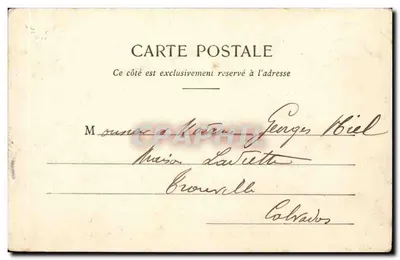 CARTE POSTALE
Ce côté est exclusivement reservé à l'adresse
Monsieur Georges Hiel
Maison
Trouville
Calvados